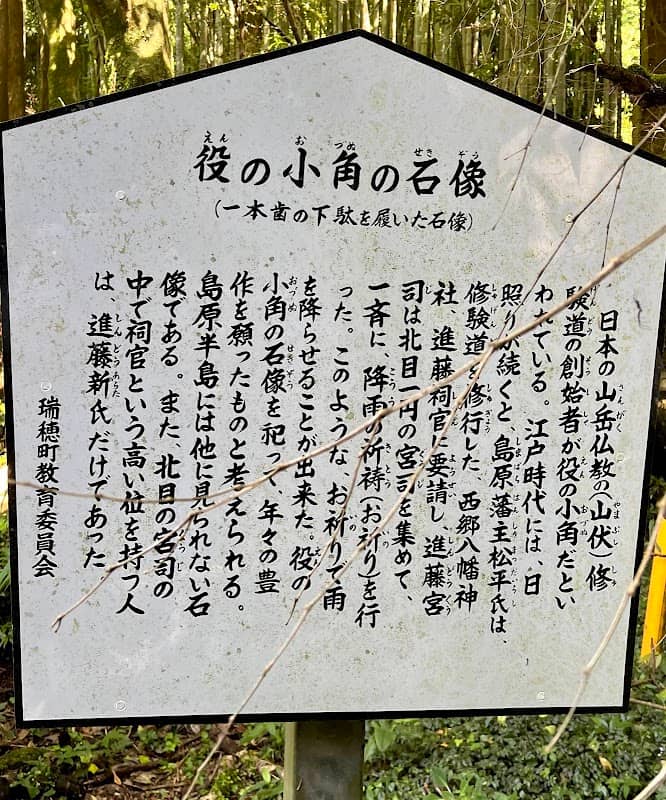 役の小角の石像
(一本歯の下駄を履いた石像)
日本の山岳仏教の(山伏)修
験道の創始者が役の小角だとい
われている。江戸時代には、日
照りが続くと、島原藩主松平氏は、
修験道を修行した、西郷八幡神
社、進藤祠官に要請し、進藤宮
司は北目一円の宮司を集めて、
一斉に、降雨の祈祷(お祈り)を行
った。このような、お祈りで雨
を降らせることが出来た。役の
小角の石像を祀って、年々の豊
作を願ったものと考えられる。
島原半島には他に見られない石
像である。また、北目の宮司の
中で祠官という高い位を持つ人
は、進藤新氏だけであった
瑞穂町教育委員会